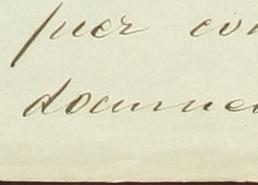 per con
documen